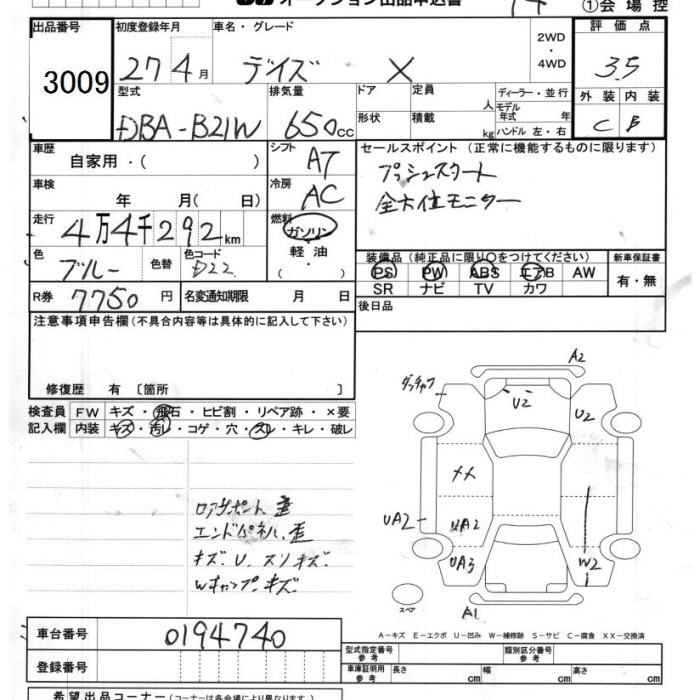 オークション出品申込書
①会場控
出品番号
3009
初度登録年月
27年4月
車名・グレード
デイズ X
2WD・4WD
評価点
3.5
外装 内装
C B
型式
DBA-B21W
排気量
650cc
ドア
形状
定員 人
積載 kg
ディーラー・並行
モデル年式 年
ハンドル 左・右
車歴
自家用・( )
シフト
AT
セールスポイント (正常に機能するものに限ります)
プッシュスタート
全方位モニター
車検
年 月( 日)
冷房
AC
走行
4万4千292km
燃料
ガソリン・軽油・
色
ブルー
色替
色コード
装備品 (純正品に限り○をつけてください)
PS PW ABS エアB AW
SR ナビ TV カワ
新車保証書
有・無
R券 7750円
名変通知期限 月 日
後日品
注意事項申告欄(不具合内容等は具体的に記入して下さい)
修復歴 有 〔箇所 〕
検査員記入欄
FW キズ・飛石・ヒビ割・リペア跡・×要
内装 キズ・汚レ・コゲ・穴・スレ・キレ・破レ
エンドパネル 歪
キズ. U. スリキズ.
A2
U2
U2
XX
UA2
UA2
UA3
W2
スペア
A1
A-キズ E-エクボ U-凹み W-補修跡 S-サビ C-腐食 XX-交換済
車台番号
0194740
登録番号
型式指定番号
類別区分番号
車庫証明用 長さ cm 幅 cm 高さ cm
希望出品コーナー(コーナーは各会場により異なります。)